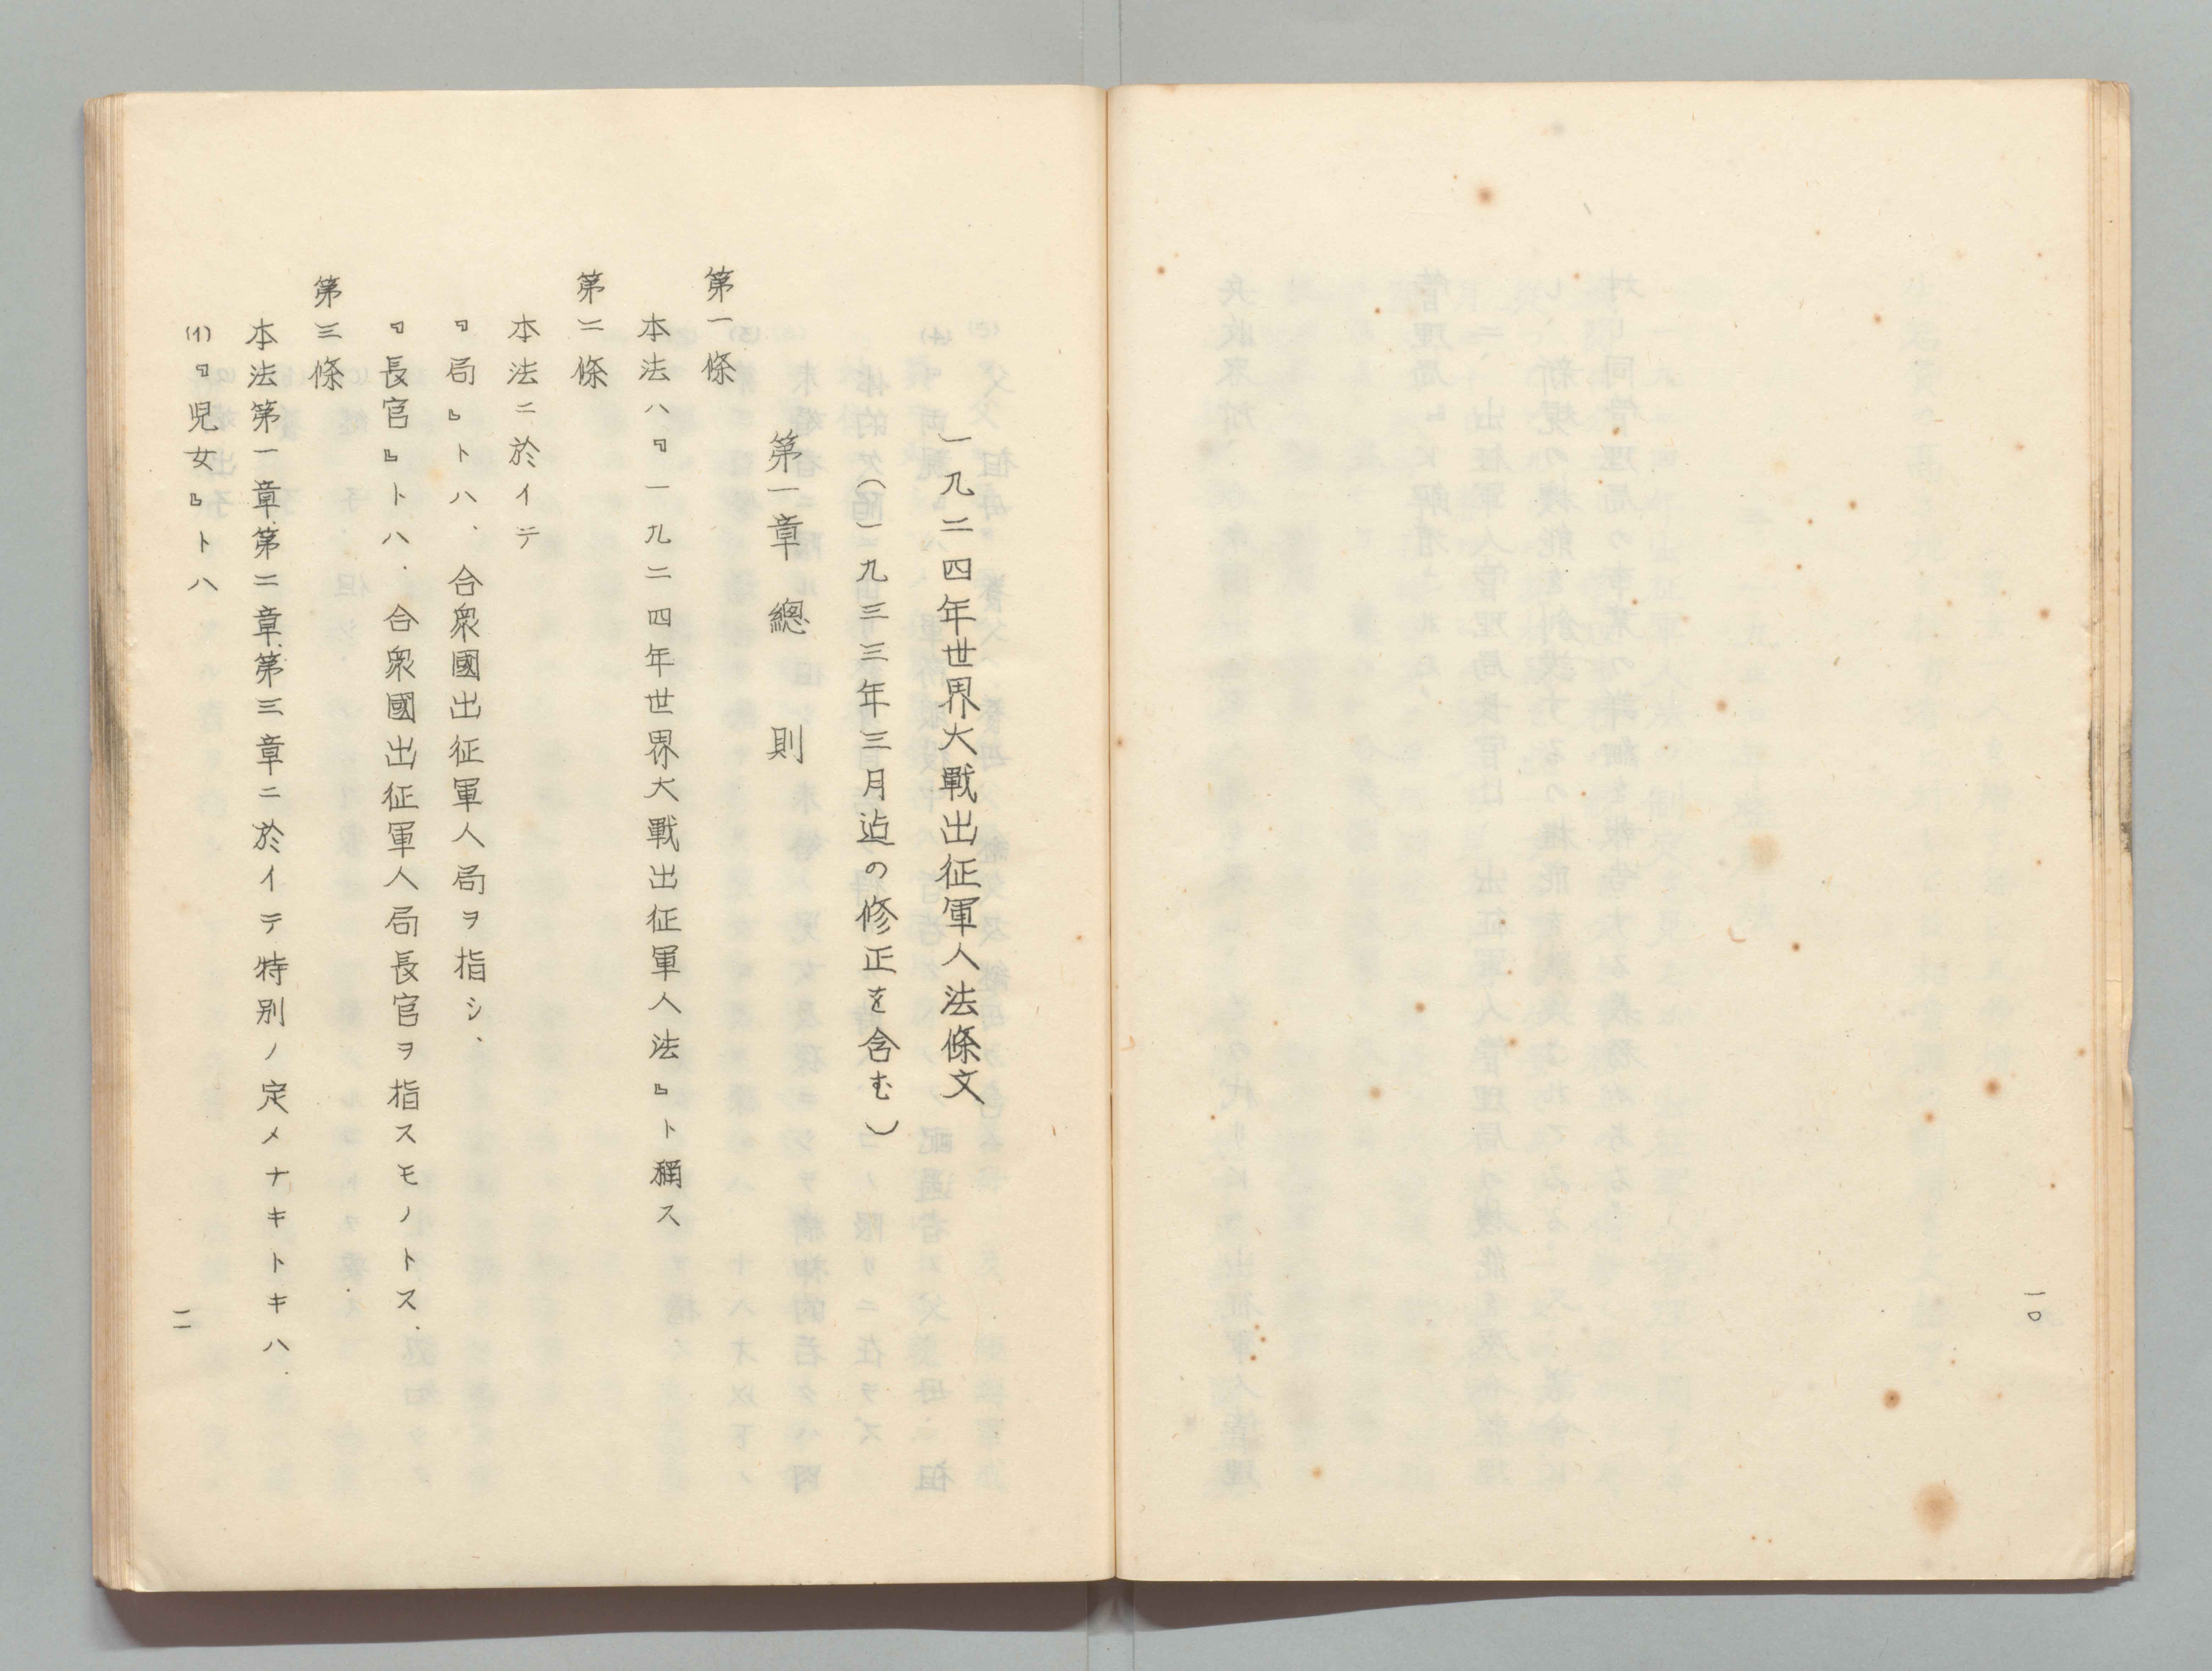 一〇
一九二四年世界大戰出征軍人法條文
（一九三三年三月迠の修正を含む）
第一章 總則
第一條
本法ハ『一九二四年世界大戰出征軍人法』ト稱ス
第二條
本法ニ於イテ
『局』トハ、合衆國出征軍人局ヲ指シ、
『長官』トハ、合衆國出征軍人局長官ヲ指スモノトス.
第三條
本法第一章.第二章.第三章ニ於イテ特別ノ定メナキトキハ.
(1)『児女』トハ
一一